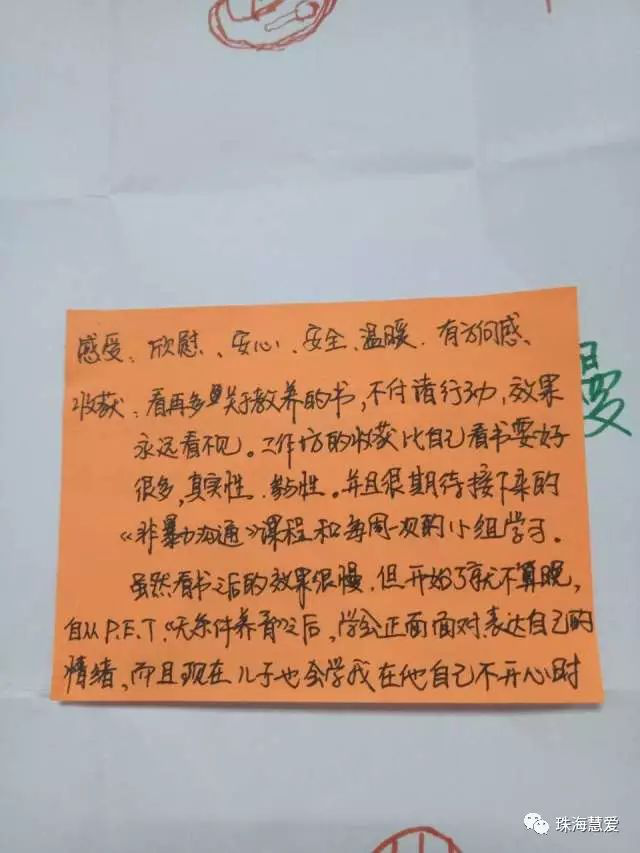 感受：欣慰、安心、安全、温暖、有方向感、
收获：看再多关于教养的书，不付诸行动，效果
永远看不见。工作坊的收获比自己看书要好
很多，真实性、参与性。并且很期待接下来的
《非暴力沟通》课程和每周一次的小组学习。
虽然看书之后的效果很慢，但开始了就不算晚，
自从P.E.T.《无条件养育》之后，学会正面面对、表达自己的
情绪，而且现在儿子也会学我在他自己不开心时
慢
珠海慧爱